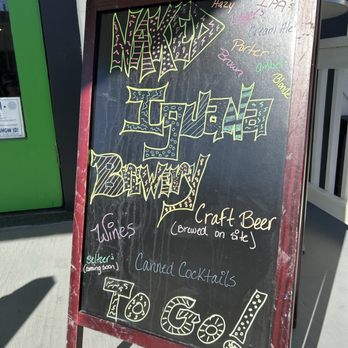 NAKED
Iguana
Brewery
Hazy
IPA's
Lagers
Cream Ale
Porter
Brown
Amber
Blonde
Craft Beer
(Brewed on site)
Wines
Seltzer's
(coming soon)
Canned Cocktails
To Go!